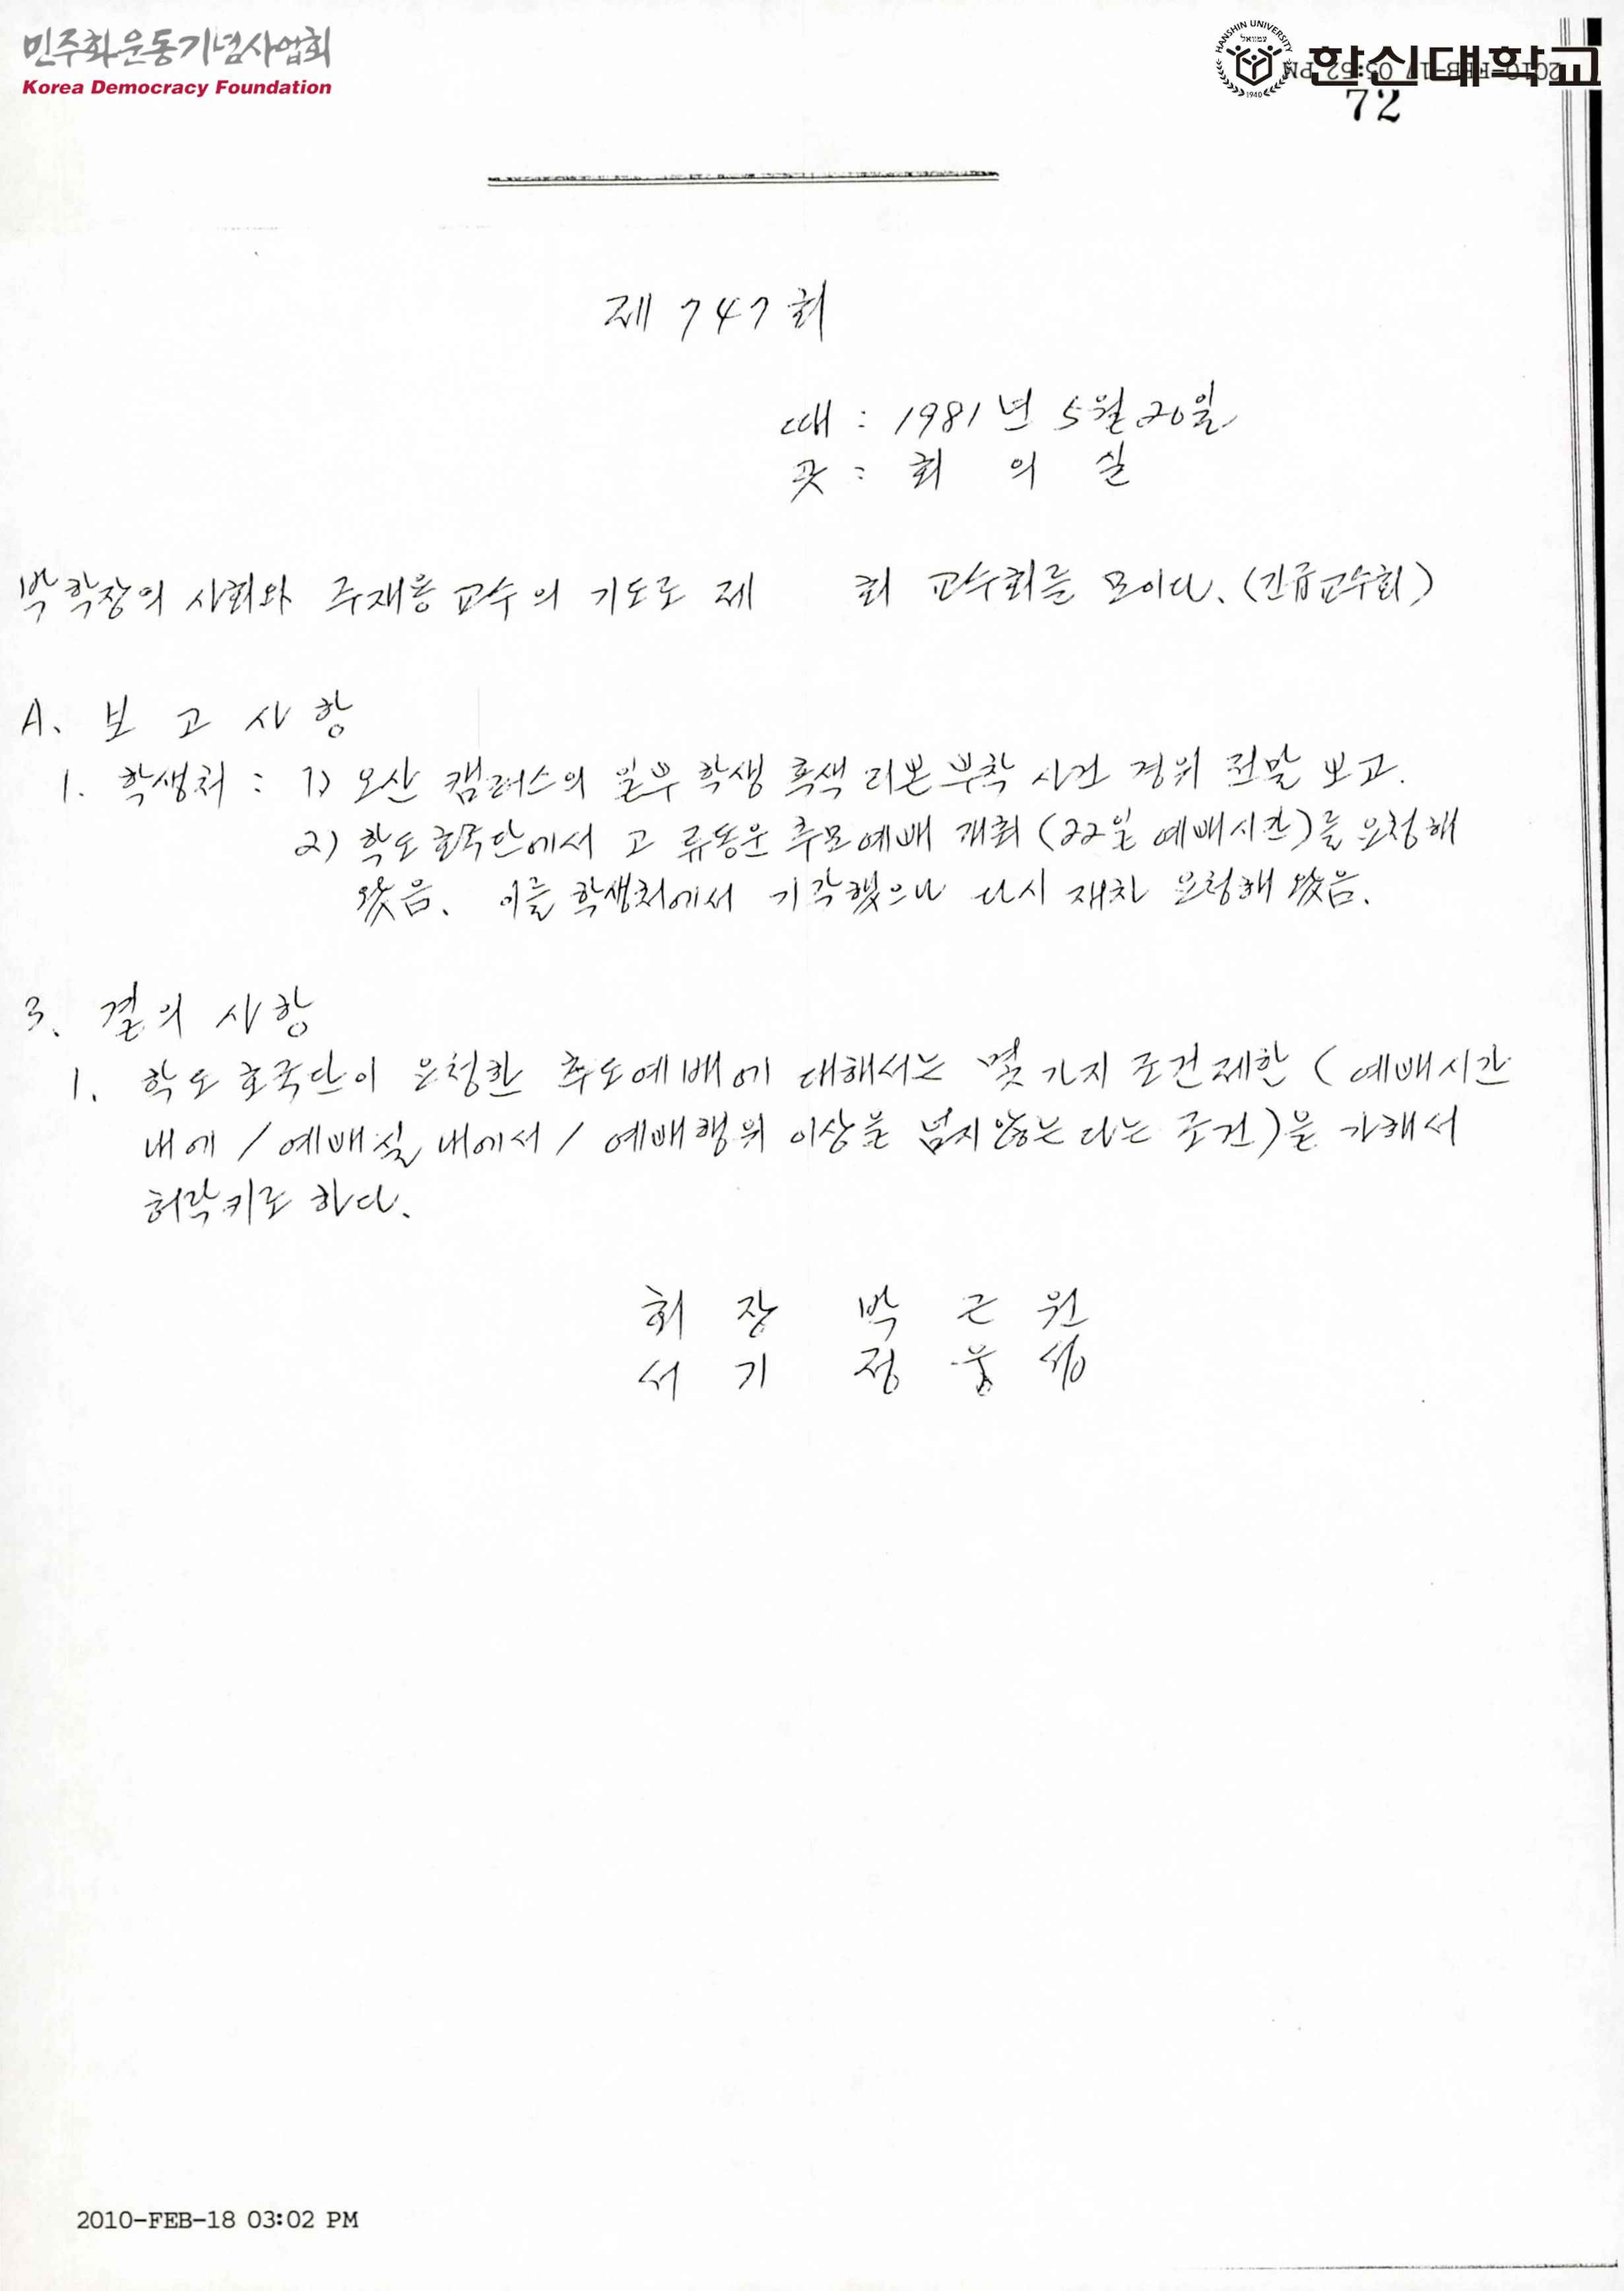 민주화운동기념사업회
Korea Democracy Foundation
HANSHIN UNIVERSITY
1940
한신대학교
72
제 747 회
때 : 1981년 5월 20일
곳 : 회 의 실
박학장의 사회와 주재용 교수의 기도로 제 회 교수회를 모이다. (긴급교수회)
A. 보 고 사 항
1. 학생처 : 1) 오산 캠퍼스의 일부 학생 흑색 리본 부착 사건 경위 전말 보고.
2) 학도호국단에서 고 류동운 추모예배 개최 (22일 예배시간)를 요청해
왔음. 이를 학생처에서 기각했으나 다시 재차 요청해 왔음.
3. 결의 사항
1. 학도호국단이 요청한 추도예배에 대해서는 몇가지 조건제한 ( 예배시간
내에 / 예배실 내에서 / 예배행위 이상을 넘지않는다는 조건)을 가해서
허락키로 하다.
회 장 박 근 원
서 기 정 웅 섭
2010-FEB-18 03:02 PM